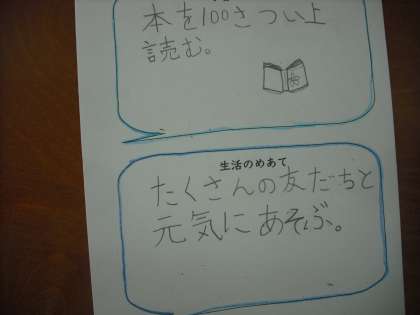 本を100さつい上
読む。
生活のめあて
たくさんの友だちと
元気にあそぶ。